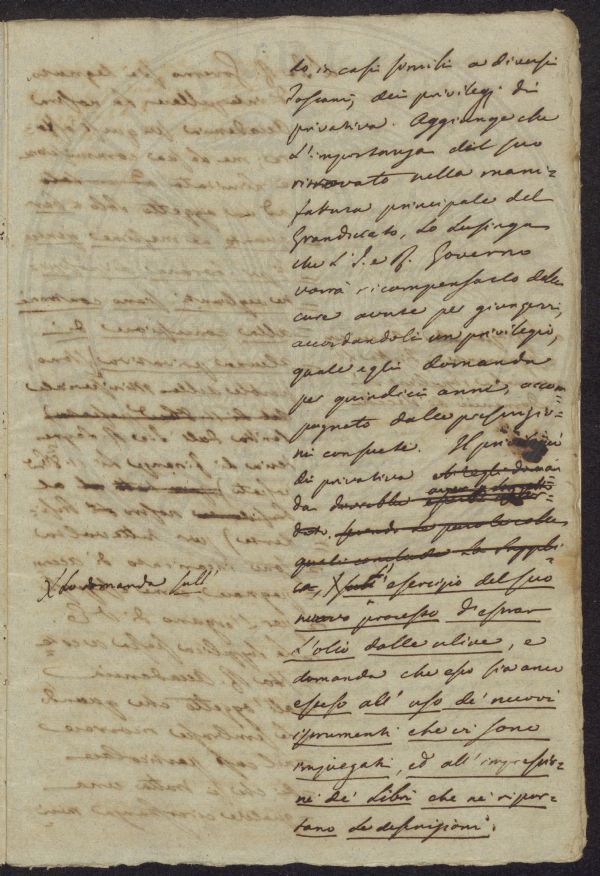 to in casi simili a diversi
Toscani, dei privilegj di
privativa. Aggiunge che
L'importanza del suo
ritrovato nella mani-
fatura principale del
Granducato, Lo Lusinga
che L'I. e R. Governo
vorrà ricompensarlo delle
cure avute per giungervi,
accordandoli un privilegio,
quale egli domanda
per quindici anni, accom-
pagnato dalle
consuete. Il privilegio
di privativa ch'egli doman
da dovrebbe
dato. secondo Le parole colle
quali conclude La Suppli
ca, X sull' esercizio del suo
X Lo domanda sull'
nuovo processo d'estrar
L'olio dalle ulive, e
domanda che esso sia anco
esteso all' uso de' nuovi
istrumenti che vi sono
impiegati, ed all' impressio-
ne de' Libri che ne ripor-
tano Le definizioni.